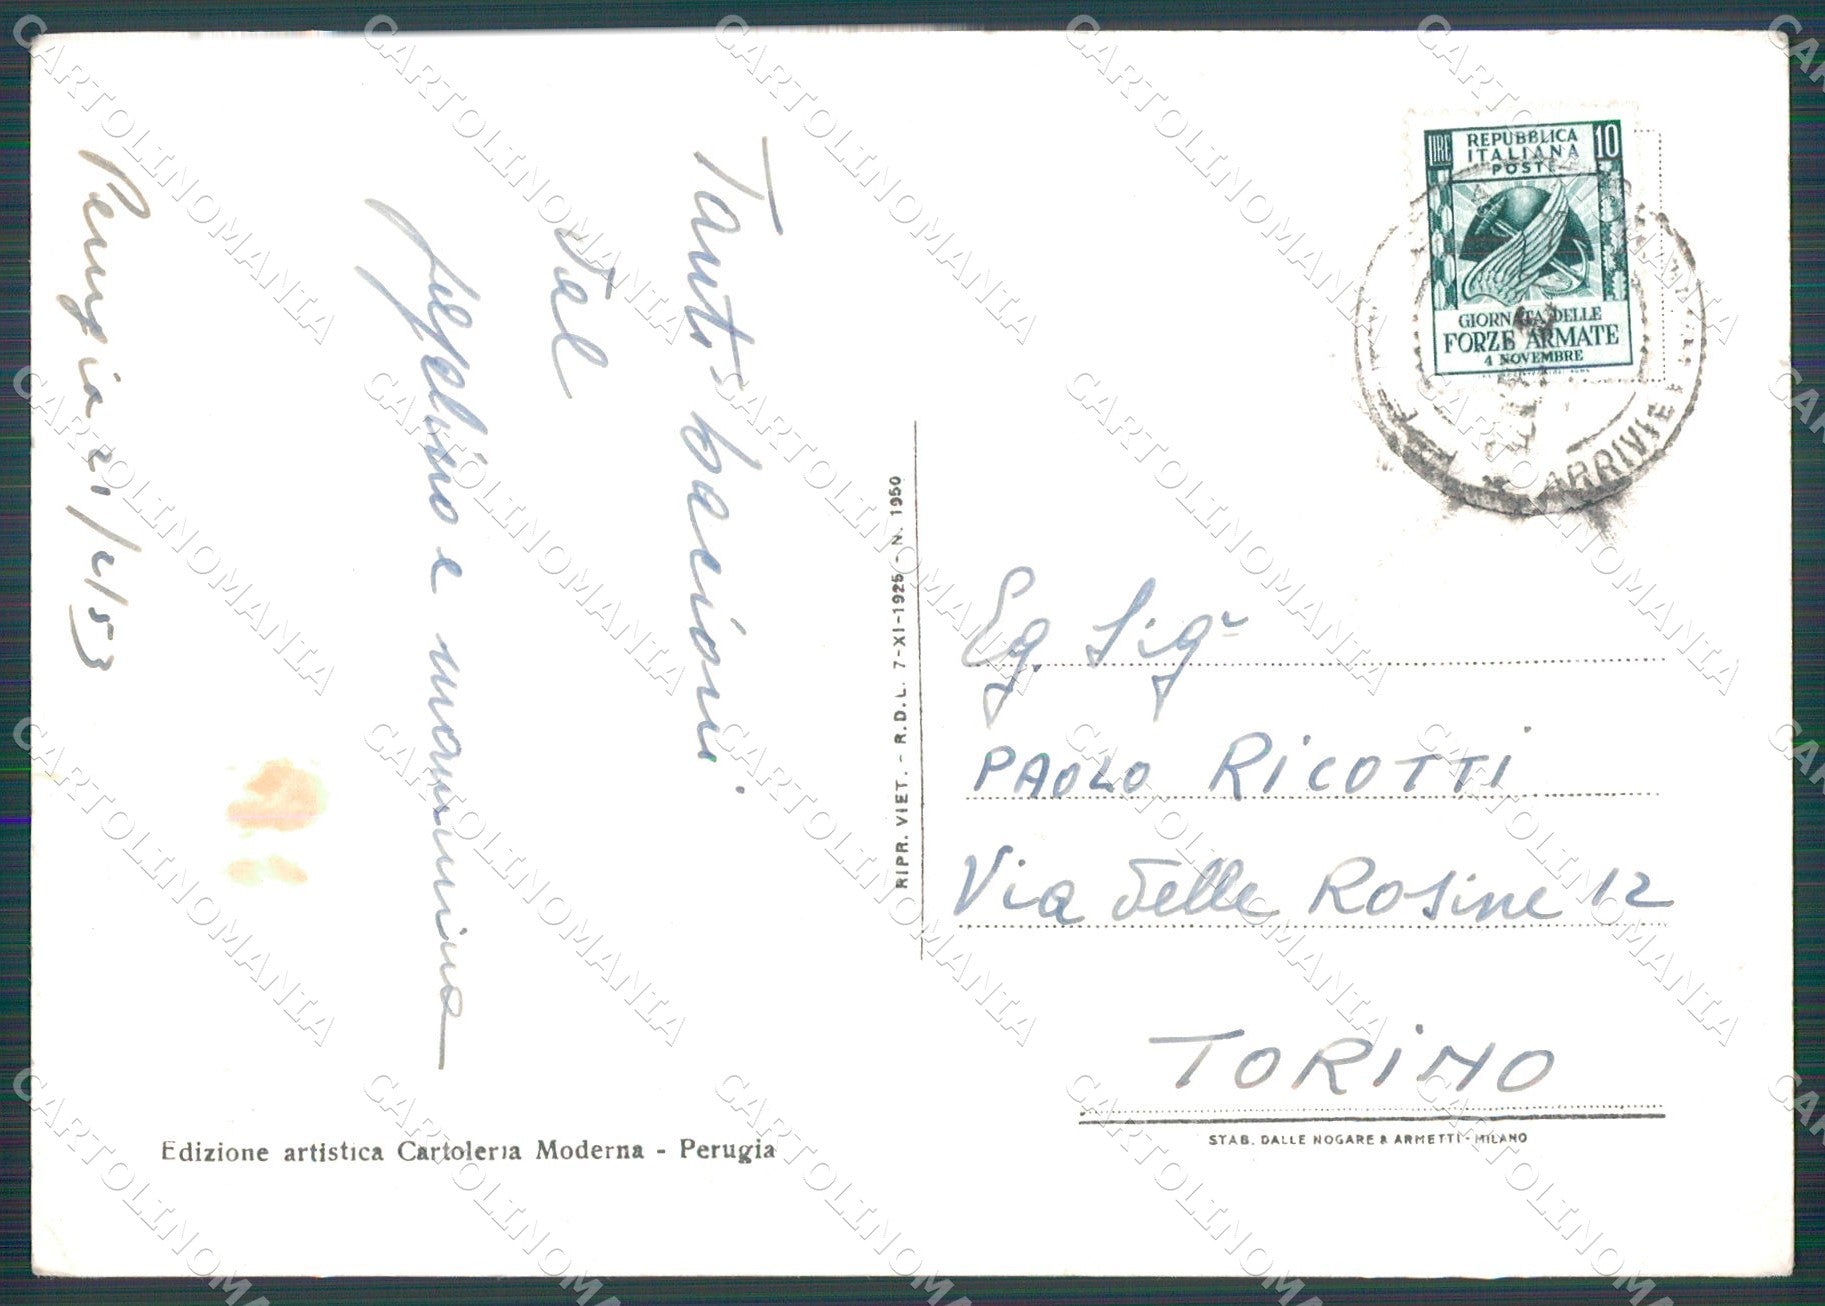 Perugia 21/2/53
Tanti bacioni
dal
peppelino e mammina
Edizione artistica Cartoleria Moderna - Perugia
RIPR. VIET. - R.D.L. 7-XI-1925 - N. 1950
LIRE REPUBBLICA 10
ITALIANA
POSTE
GIORNATA DELLE
FORZE ARMATE
4 NOVEMBRE
ARRIVI E
Eg. Sigr
PAOLO RICOTTI
Via delle Rosine 12
TORINO
STAB. DALLE NOGARE & ARMETTI - MILANO
CARTOLINOMANIA